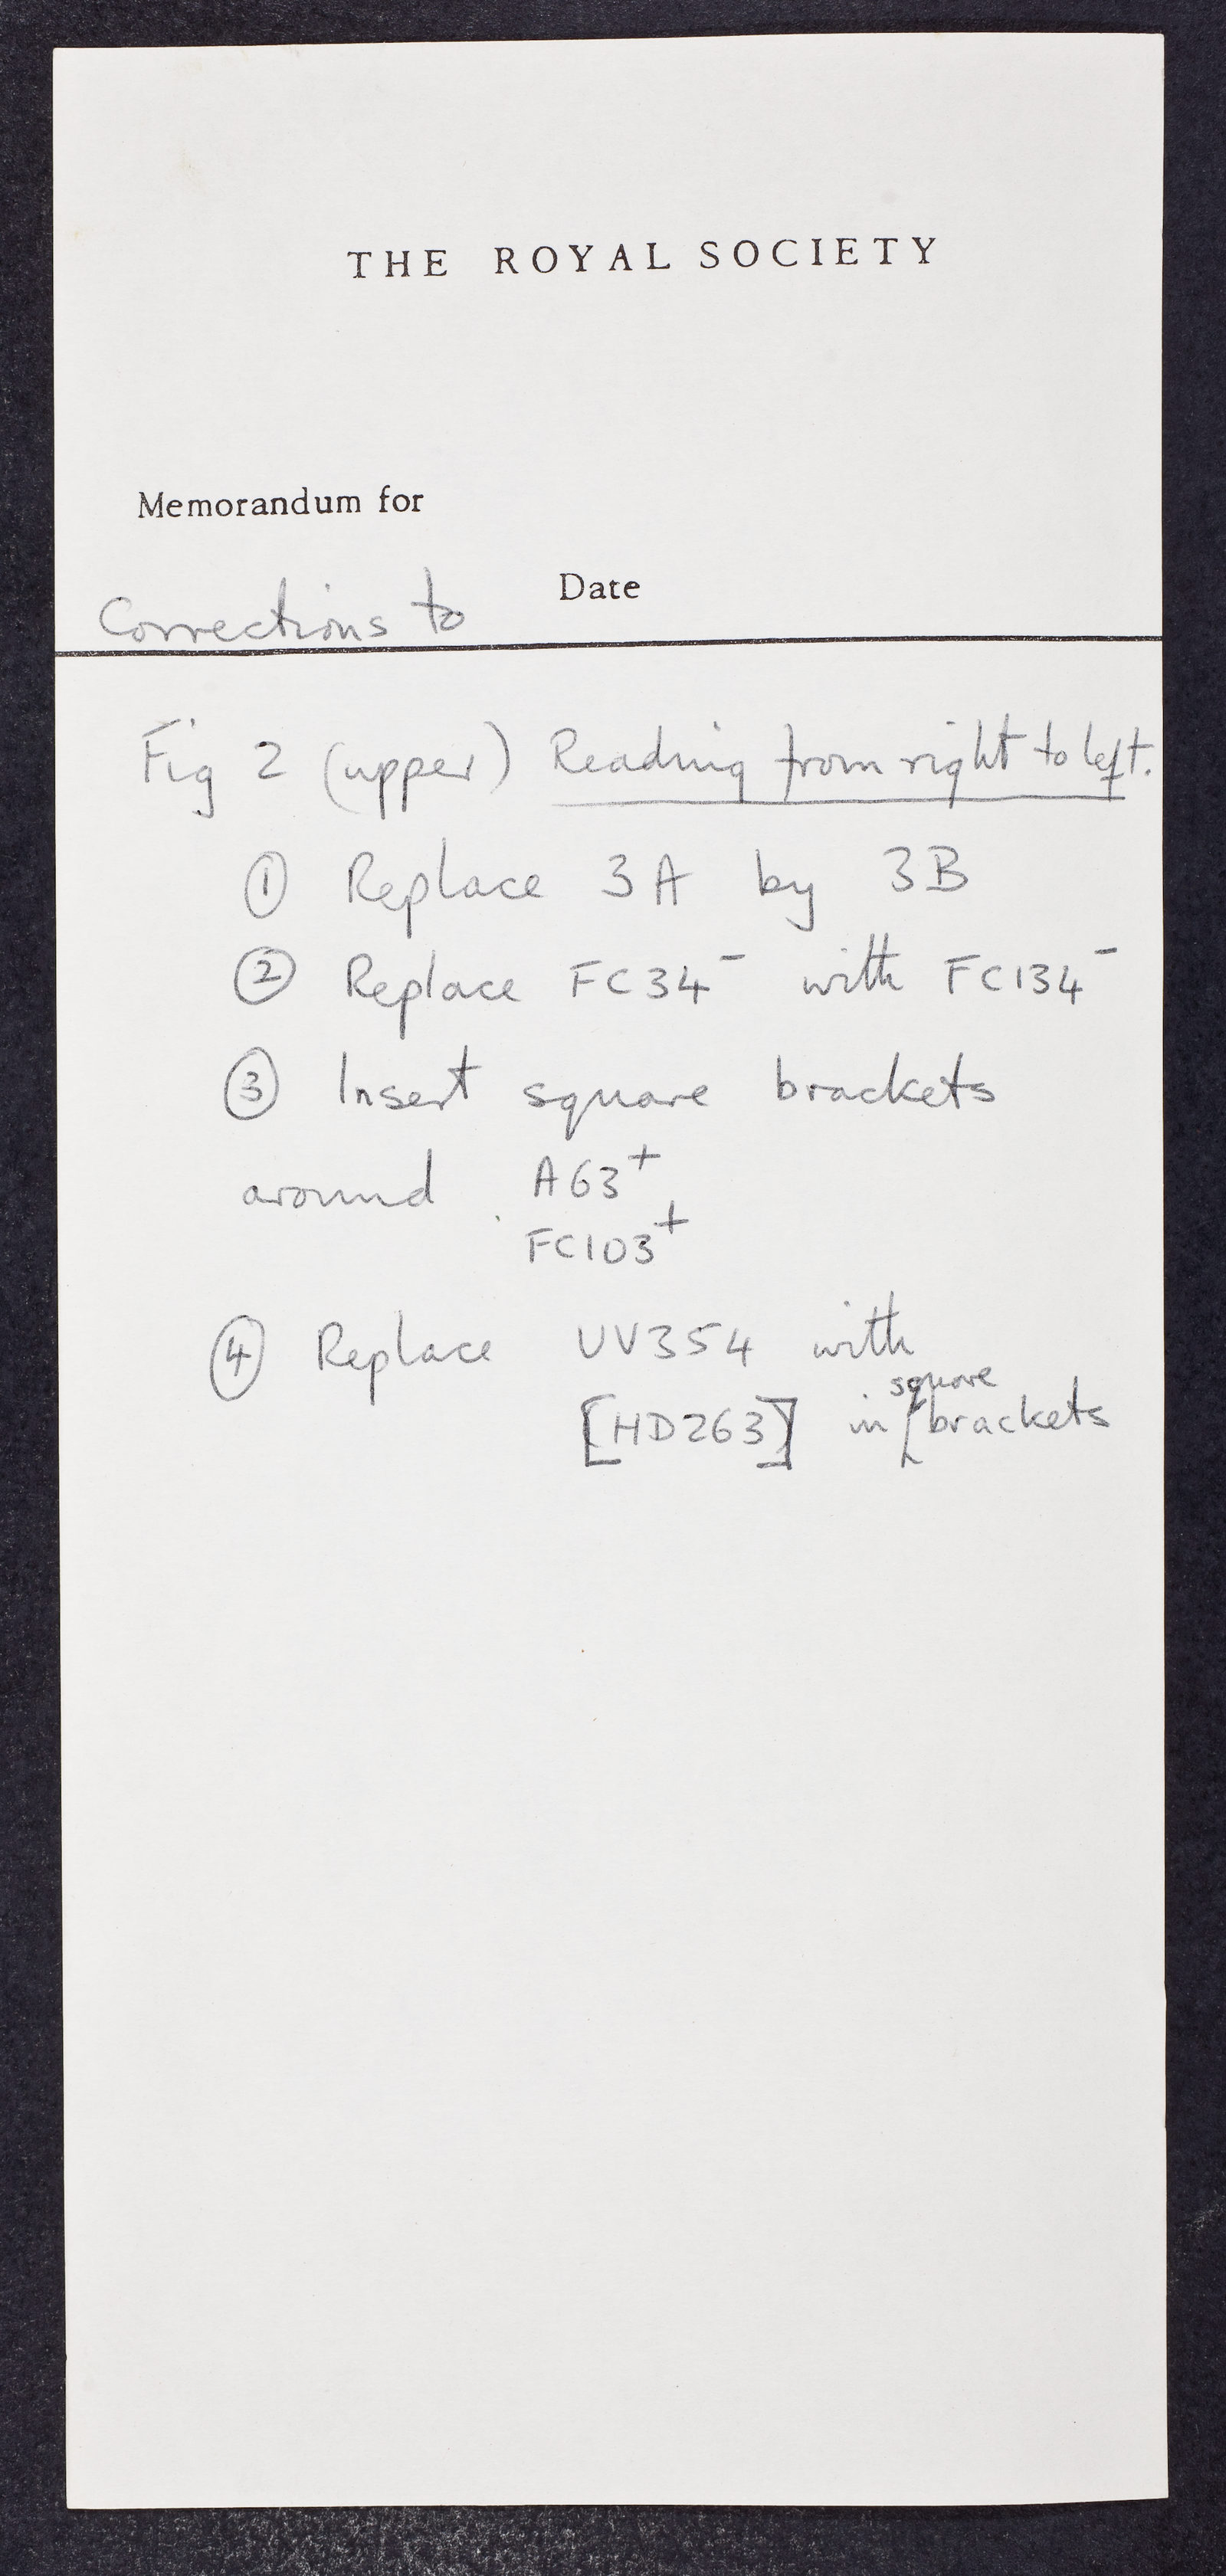 THE ROYAL SOCIETY
Memorandum for
Date
Corrections to
Fig 2 (upper) Reading from right to left.
① Replace 3A by 3B
② Replace FC34⁻ with FC134⁻
③ Insert square brackets
around A63⁺
FC103⁺
④ Replace UV354 with
square
[HD263] in brackets